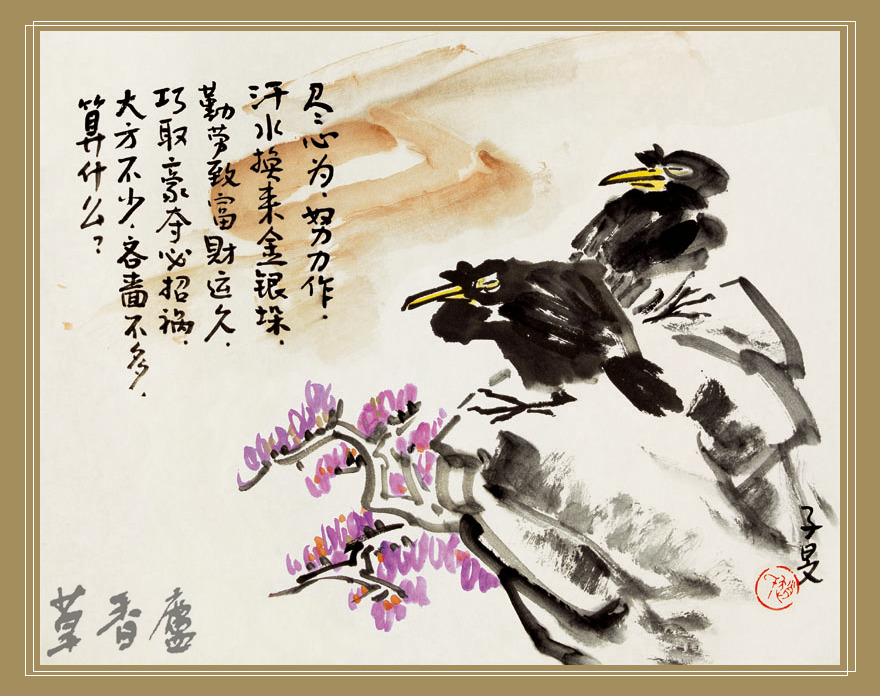 尽心为、努力作.
汗水换来金银垛.
勤劳致富财运久.
巧取豪夺必招祸.
大方不少.吝啬不多.
算什么？
子旻
草香廬